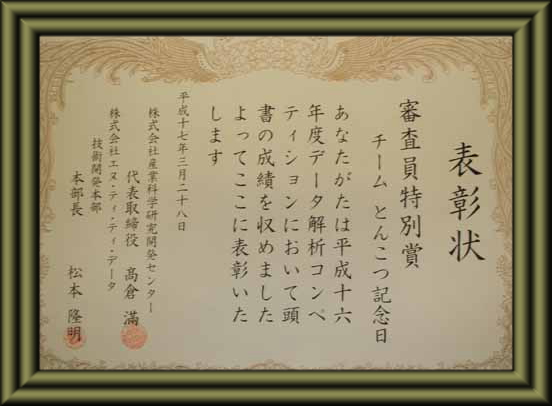 表彰状
審査員特別賞
チーム とんこつ記念日
あなたがたは平成十六
年度データ解析コンペ
ティションにおいて頭
書の成績を収めました
よってここに表彰いた
します
平成十七年三月二十八日
株式会社産業科学研究開発センター
代表取締役 高倉 満
株式会社エヌ・ティ・ティ・データ
技術開発本部
本部長 松本 隆明